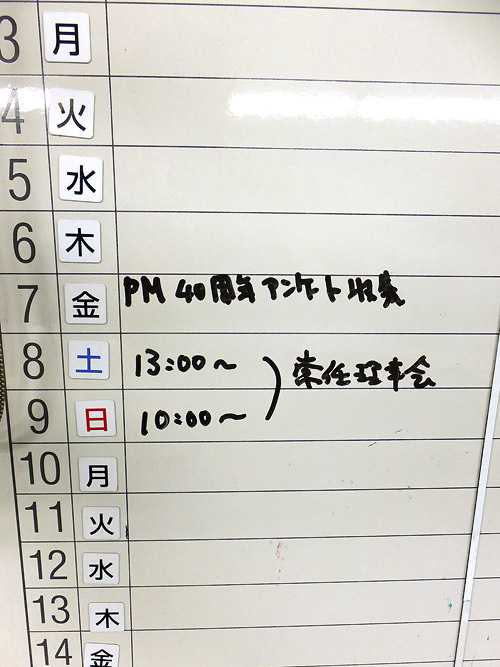 3 月
4 火
5 水
6 木
7 金 PM 40周年アンケート収集
8 土 13:00〜
9 日 10:00〜
常任理事会
10 月
11 火
12 水
13 木
14 金